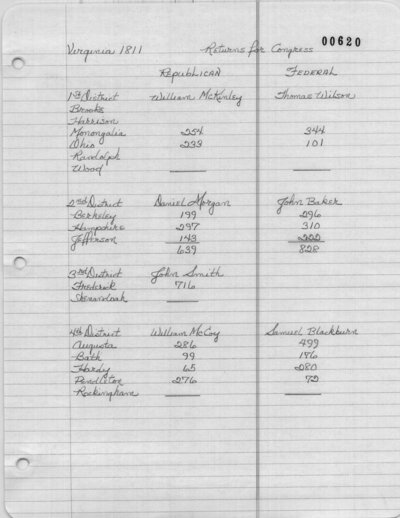 00620
Virginia 1811 Returns for Congress
Republican Federal
1st District William McKinley Thomas Wilson
Brooks
Harrison
Monongalia 254 344
Ohio 233 101
Randolph
Wood
2nd District Daniel Morgan John Baker
Berkeley 199 296
Hampshire 297 310
Jefferson 143 222
639 828
3rd District John Smith
Frederick 716
Shenandoah
4th District William McCoy Samuel Blackburn
Augusta 286 499
Bath 99 176
Hardy 65 280
Pendleton 276 72
Rockingham